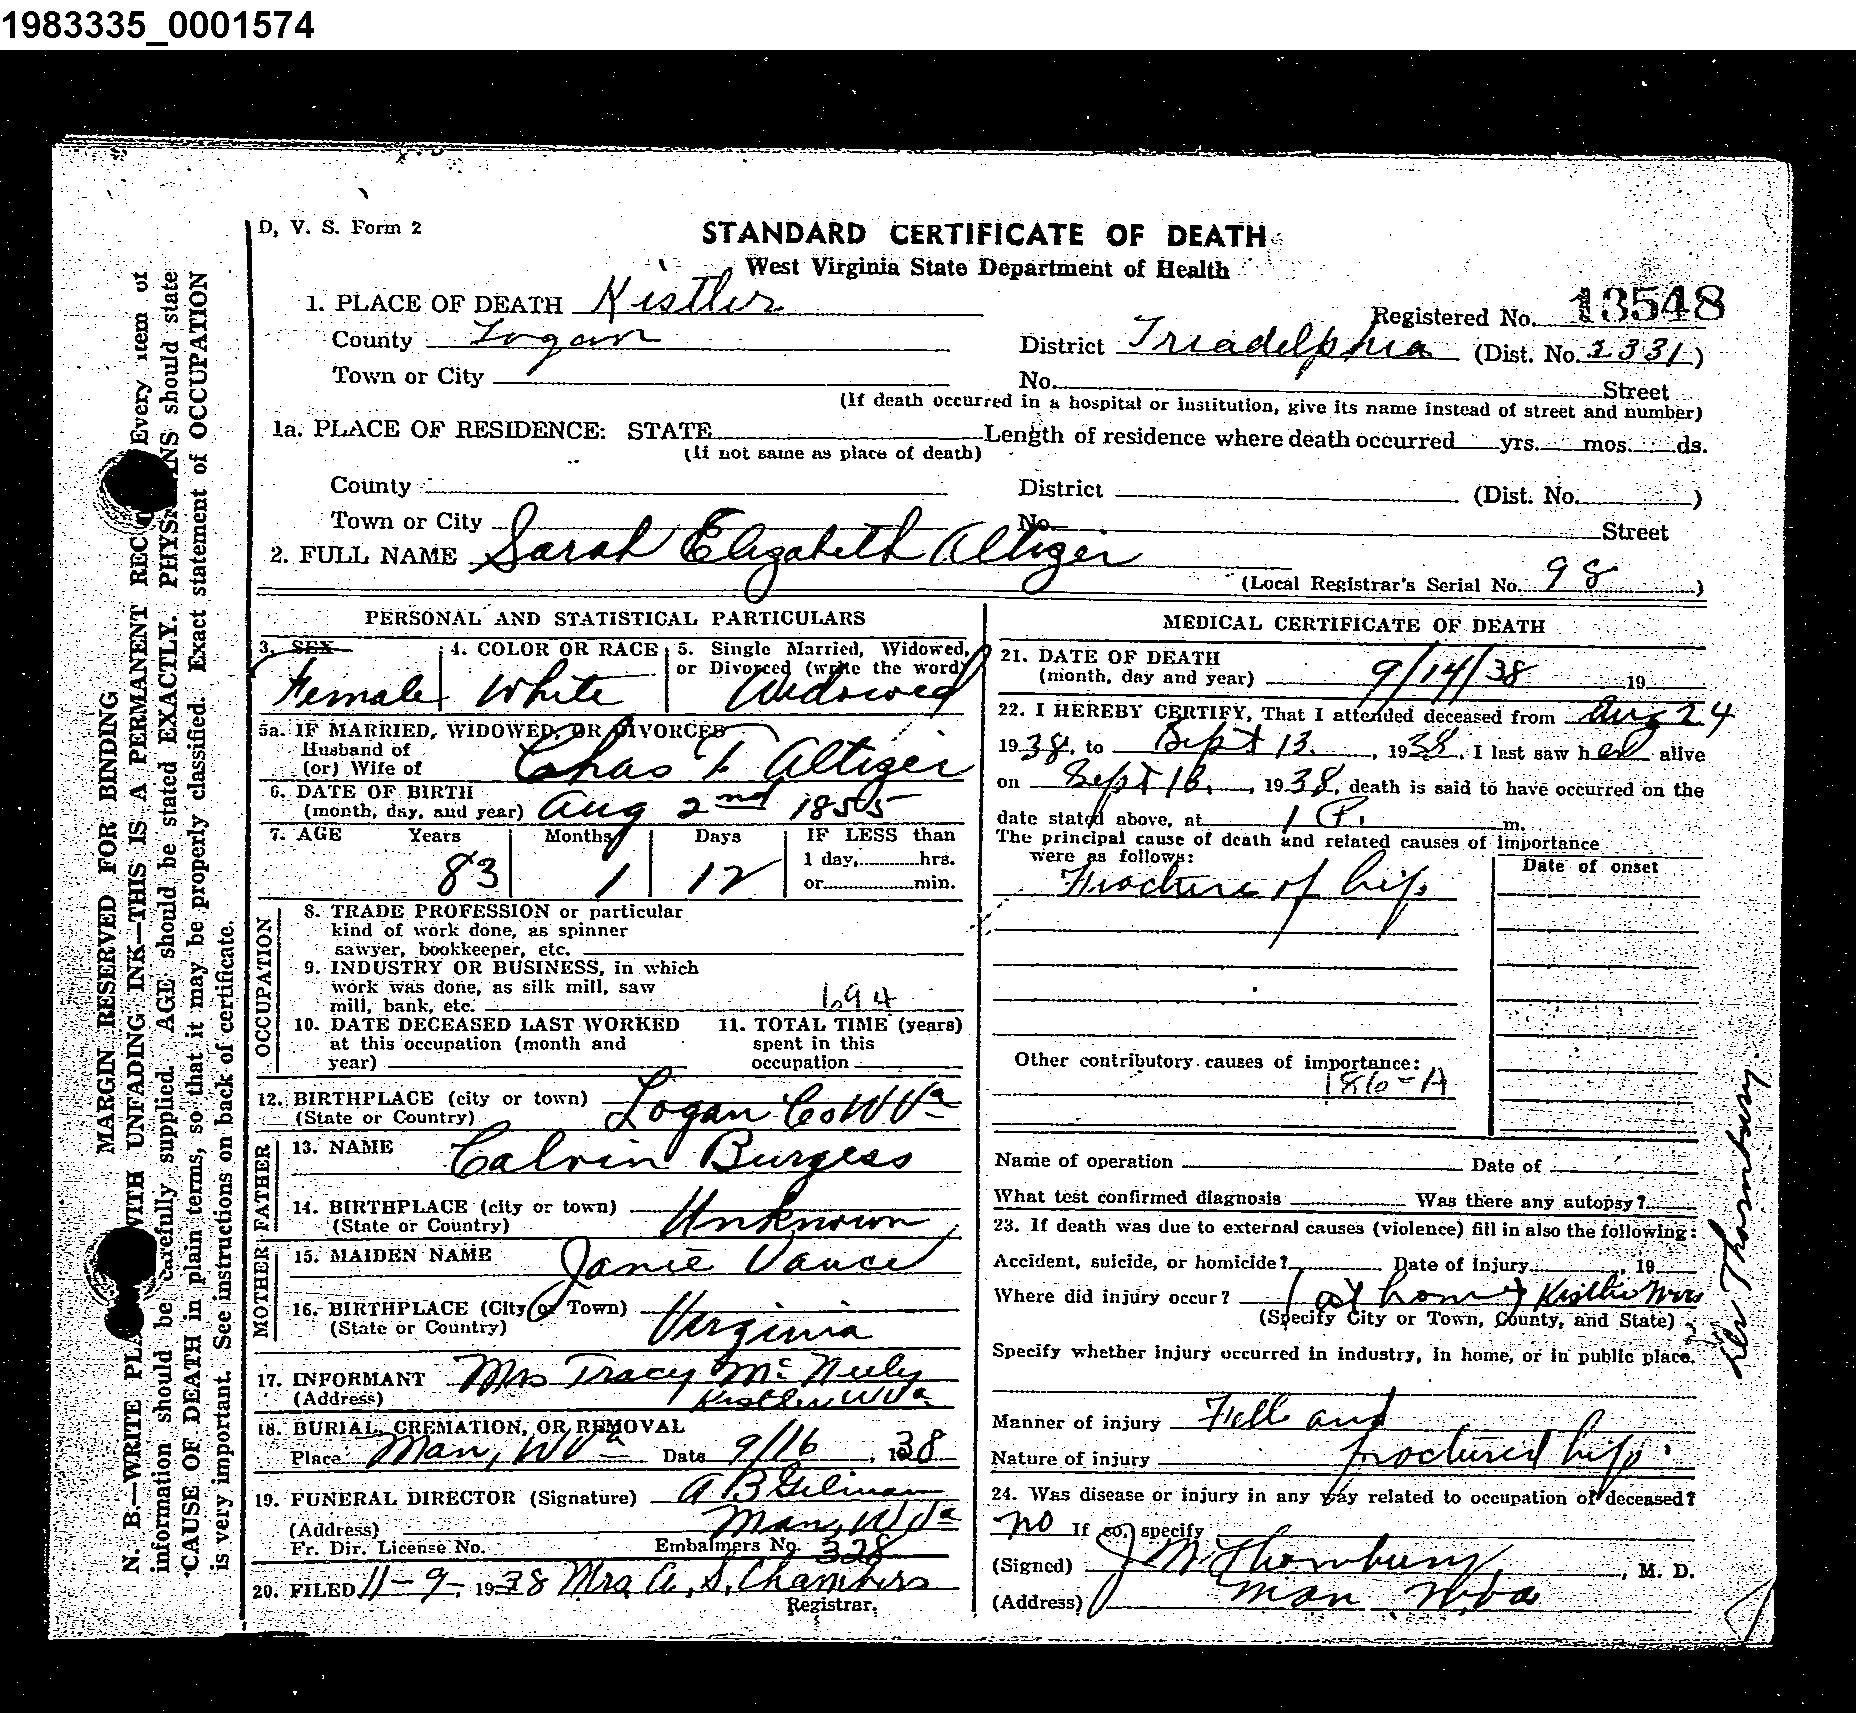 1983335_0001574
D. V. S. Form 2
STANDARD CERTIFICATE OF DEATH
West Virginia State Department of Health
1. PLACE OF DEATH Kistler
Registered No. 13548
County Logan
District Triadelphia (Dist. No. 2331)
Town or City
No. Street
(If death occurred in a hospital or institution, give its name instead of street and number)
1a. PLACE OF RESIDENCE: STATE Length of residence where death occurred yrs. mos. ds.
(If not same as place of death)
County District (Dist. No. )
Town or City No. Street
2. FULL NAME Sarah Elizabeth Altizer
(Local Registrar's Serial No. 98 )
PERSONAL AND STATISTICAL PARTICULARS
3. SEX 4. COLOR OR RACE 5. Single Married, Widowed, or Divorced (write the word)
Female White Widowed
5a. IF MARRIED, WIDOWED, OR DIVORCED
Husband of
(or) Wife of Chas F Altizer
6. DATE OF BIRTH
(month, day, and year) Aug 2nd 1855
7. AGE Years Months Days IF LESS than
1 day, hrs.
83 1 12 or min.
OCCUPATION
8. TRADE PROFESSION or particular
kind of work done, as spinner
sawyer, bookkeeper, etc.
9. INDUSTRY OR BUSINESS, in which
work was done, as silk mill, saw
mill, bank, etc. 194
10. DATE DECEASED LAST WORKED
at this occupation (month and
year)
11. TOTAL TIME (years)
spent in this
occupation
12. BIRTHPLACE (city or town)
(State or Country) Logan Co W Va
FATHER
13. NAME Calvin Burgess
14. BIRTHPLACE (city or town)
(State or Country) Unknown
MOTHER
15. MAIDEN NAME Janie Vance
16. BIRTHPLACE (City or Town)
(State or Country) Virginia
17. INFORMANT Mrs Tracy McNeely
(Address) Kistler W Va
18. BURIAL, CREMATION, OR REMOVAL
Place Man, W Va Date 9/16, 1938
19. FUNERAL DIRECTOR (Signature) A B Gilman
(Address) Man, W Va
Fr. Dir. License No. Embalmers No. 328
20. FILED 11-9-1938 Mrs. A. S. Chambers
Registrar.
MEDICAL CERTIFICATE OF DEATH
21. DATE OF DEATH
(month, day and year) 9/14/38 19
22. I HEREBY CERTIFY, That I attended deceased from Aug 24
1938, to Sept 13, 1938, I last saw her alive
on Sept 13, 1938, death is said to have occurred on the
date stated above, at 1 P. m.
The principal cause of death and related causes of importance
were as follows: Date of onset
Fracture of hip
Other contributory causes of importance:
186-A
Name of operation Date of
What test confirmed diagnosis Was there any autopsy?
23. If death was due to external causes (violence) fill in also the following:
Accident, suicide, or homicide? Date of injury , 19
Where did injury occur? (at home) Kistler W Va
(Specify City or Town, County, and State)
Specify whether injury occurred in industry, in home, or in public place.
Manner of injury Fell and
Nature of injury fractured hip
24. Was disease or injury in any way related to occupation of deceased?
no If so, specify
(Signed) J M Thornbury, M. D.
(Address) Man W Va
Thornbury
MARGIN RESERVED FOR BINDING
N. B.—WRITE WITH UNFADING INK—THIS IS A PERMANENT Every item of
information should be carefully supplied. AGE should be stated EXACTLY. should state
CAUSE OF DEATH in plain terms, so that it may be properly classified. Exact statement of OCCUPATION
is very important. See instructions on back of certificate.